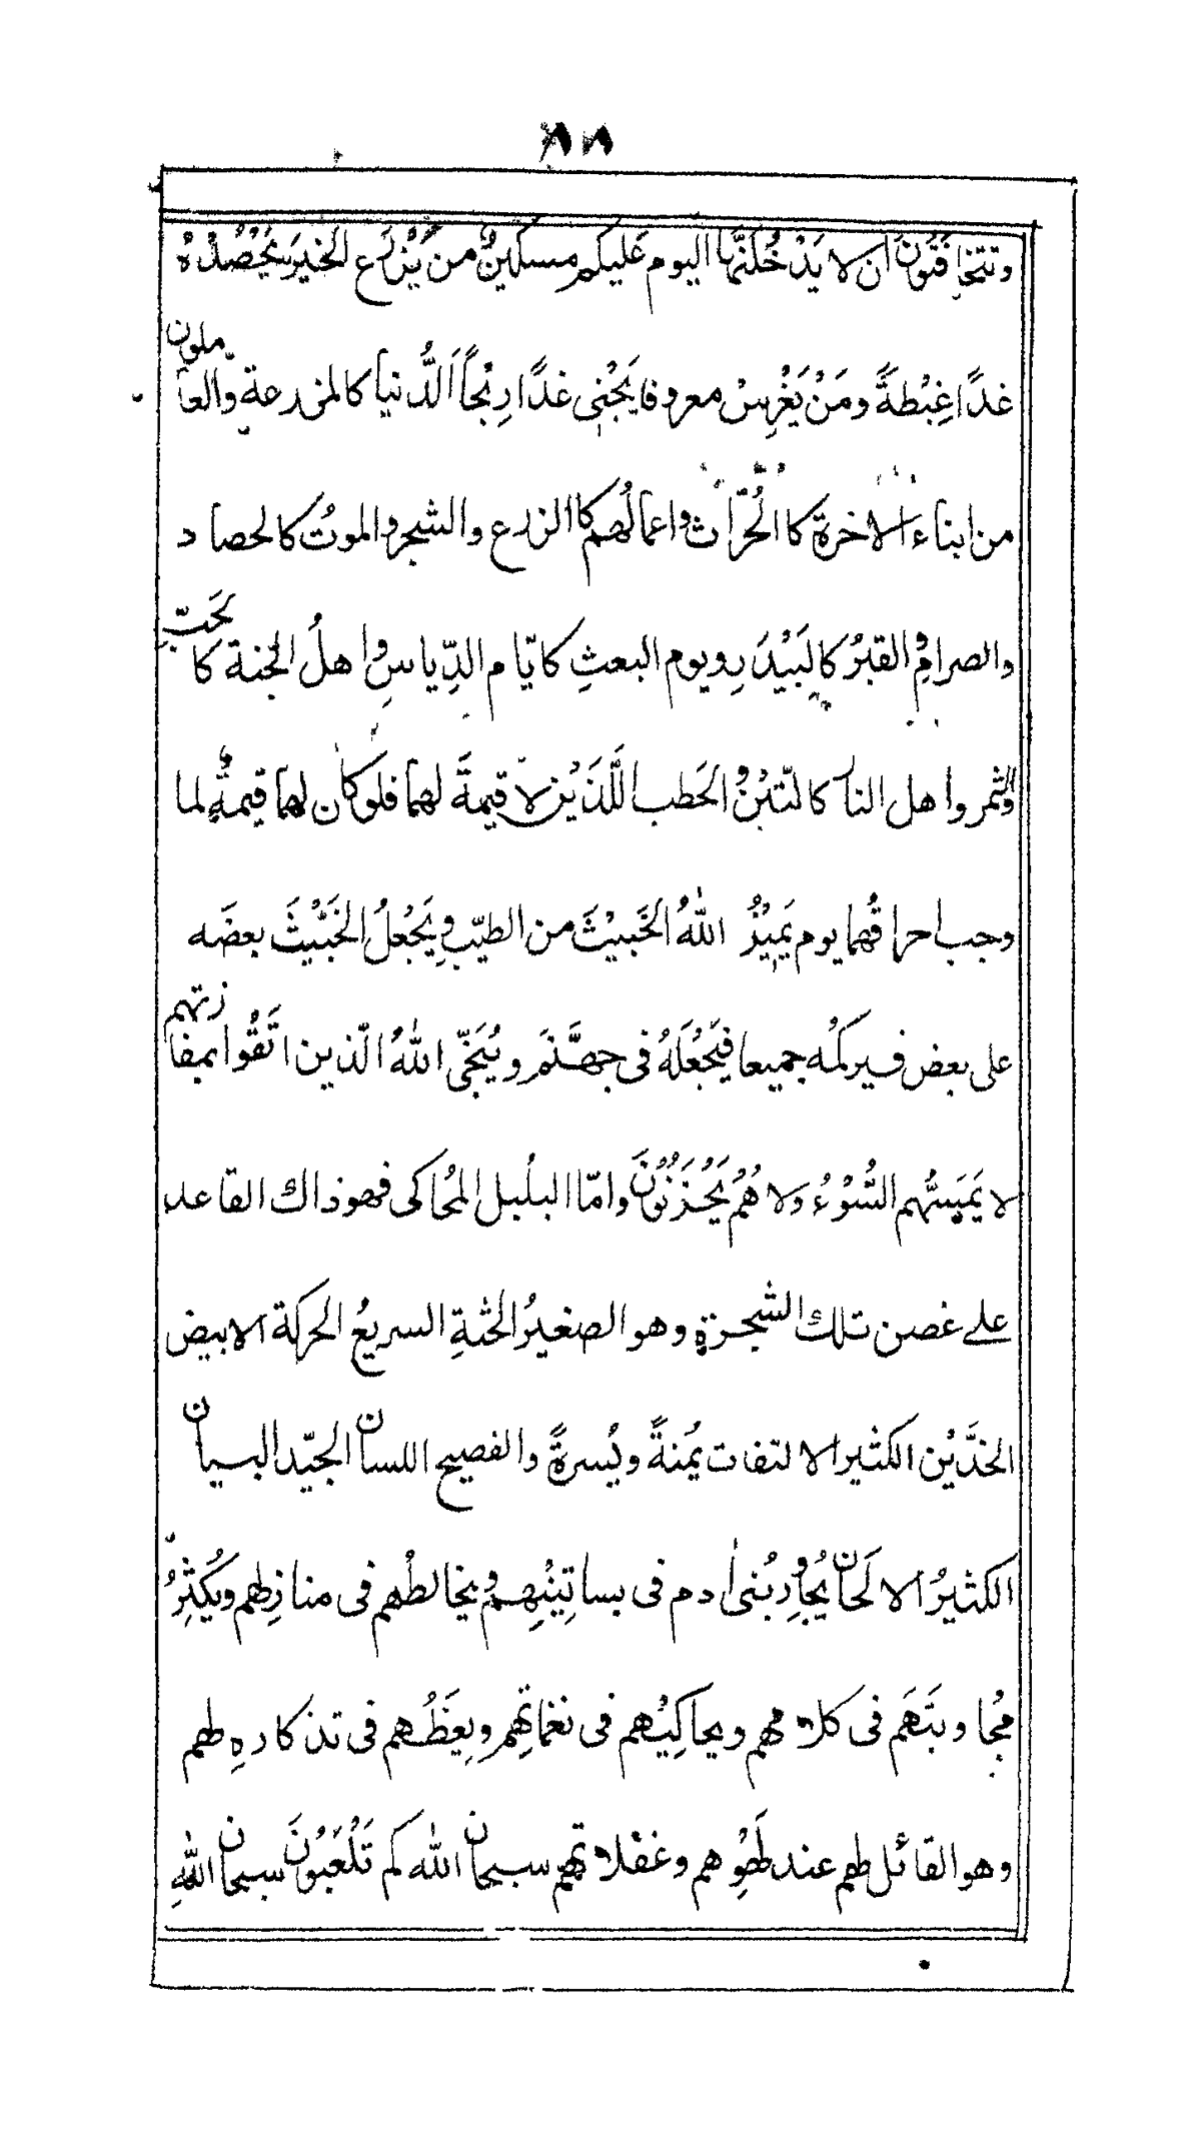 ٨٨
وتتخافَتُونَ ان لا يَدْخُلَنَّها اليوم عَليكم مسكينٌ من يَّزْرَع الخيرَ يَحْصُدْهُ
غدًا غِبْطةً ومَنْ يَغْرِسْ معروفا يَجْنِى غدًا رِبْحًا اَلدُّنيا كالمزرعة والعاملون
من ابناء الاخرة كالحُرّاث واعمالُهم كاالزرع والشجر والموتُ كالحصاد
والصرامِ والقبرُ كالبَيْدَرِ ويوم البعثِ كايّام الدِّياسِ واهلُ الجنة كالحَبِّ
والثمر واهل النار كالتّبْنِ والحَطب اللَّذَيْنِ لا قيمةَ لهما فلو كان لهما قيمةٌ لما
وجب احراقُهما يوم يَمِيْزُ اللهُ الخَبيْثَ من الطيّب ويَجْعَلُ الخَبيْثَ بعضَه
على بعض فيركمُه جميعا فيَجْعَلَهُ فى جهنَّمَ ويُنَجّى اللهُ الّذين اتَّقُوا بمفازتهم
لا يَمَسُّهم السُّوْءُ ولا هُمْ يَحْزَنُوْنَ وامّا البلُبل المُحاكى فهو ذاك القاعد
على غصن تلك الشجرةِ وهو الصغيرُ الجثةِ السريعُ الحركة الابيض
الخَدَّيْن الكثير الالتفات يُمنةً ويُسرةً والفصيح اللسان الجيّد البيان
الكثيرُ الالَحان يُجاوِرُ بنىْ ادم فى بساتِيْنِهم ويخالطُهم فى منازِلهم ويُكْثِرُ
مُجاوبتَهَم فى كلامهم ويحاكِيْهم فى نغماتِهم ويعِظُهم فى تذكارهِ لهم
وهو القائل لهم عند لَهْوِهم وغفلاتهم سبحان الله كم تَلْعَبُوْنَ سبحان اللهِ